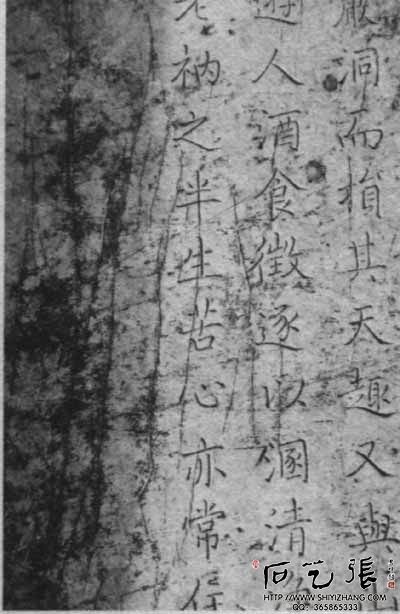 巖洞而損其天趣又與
遊人酒食徵逐以溷清
老衲之半生苦心亦常住
石艺張
HTTP://WWW.SHIYIZHANG.COM
QQ: 365865333